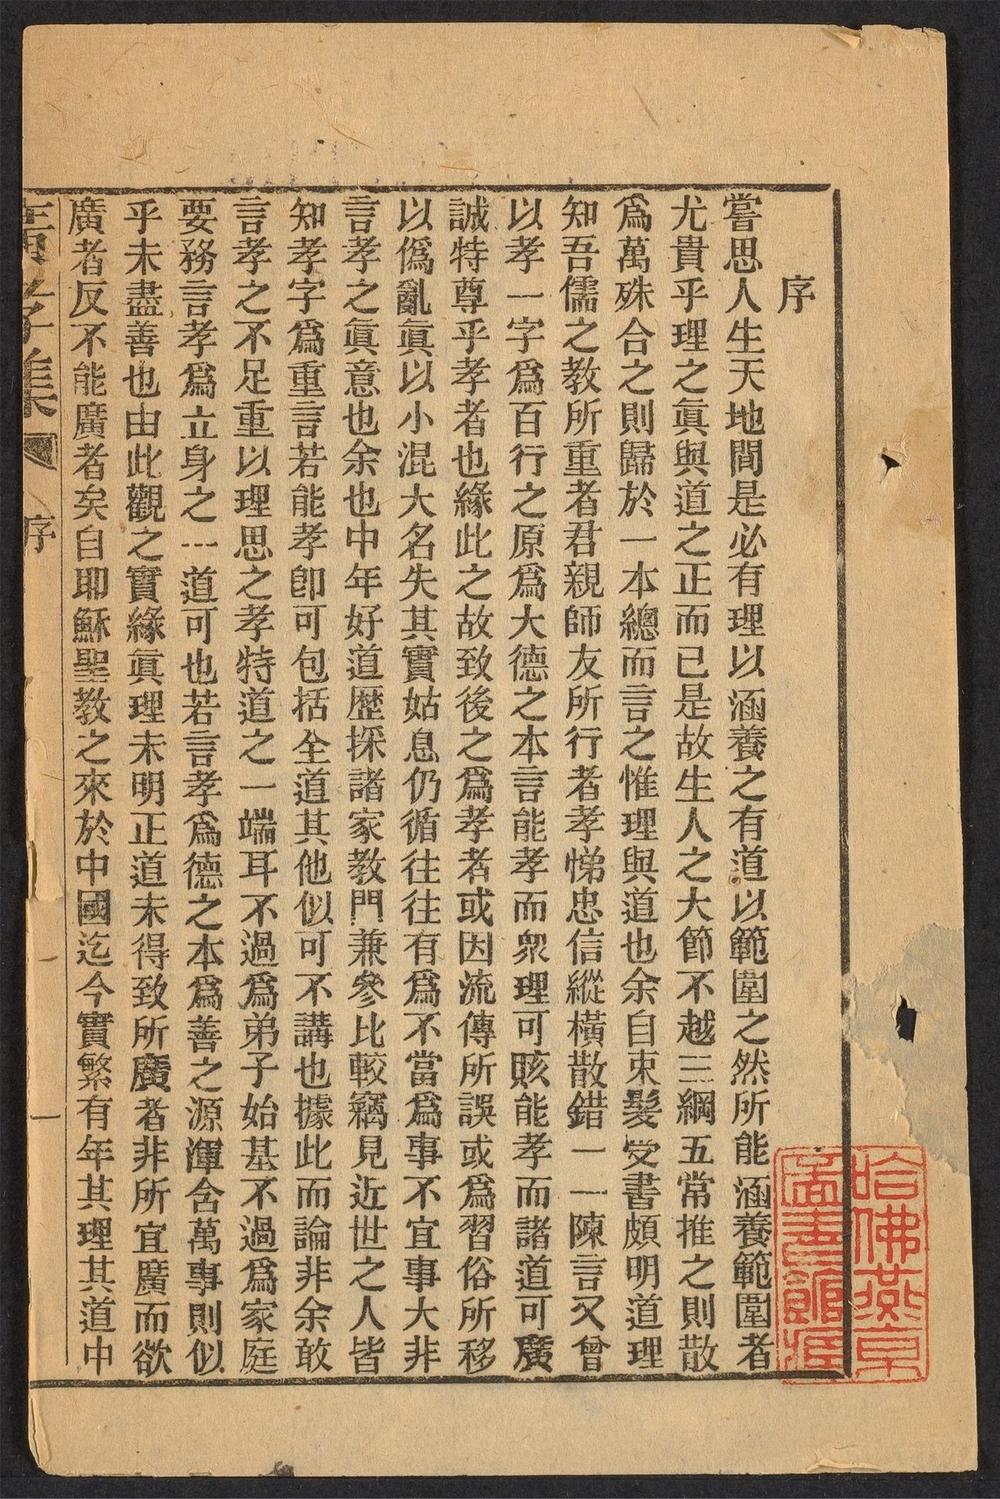 序
嘗思人生天地間是必有理以涵養之有道以範圍之然所能涵養範圍者
尤貴乎理之眞與道之正而已是故生人之大節不越三綱五常推之則散
爲萬殊合之則歸於一本總而言之惟理與道也余自束髮受書頗明道理
知吾儒之教所重者君親師友所行者孝悌忠信縱橫散錯一一陳言又曾
以孝一字爲百行之原爲大德之本言能孝而衆理可賅能孝而諸道可廣
誠特尊乎孝者也緣此之故致後之爲孝者或因流傳所誤或爲習俗所移
以僞亂眞以小混大名失其實姑息仍循往往有爲不當爲事不宜事大非
言孝之眞意也余也中年好道歷採諸家教門兼參比較竊見近世之人皆
知孝字爲重言若能孝卽可包括全道其他似可不講也據此而論非余敢
言孝之不足重以理思之孝特道之一端耳不過爲弟子始基不過爲家庭
要務言孝爲立身之一道可也若言孝爲德之本爲善之源渾含萬事則似
乎未盡善也由此觀之實緣眞理未明正道未得致所廣者非所宜廣而欲
廣者反不能廣者矣自耶穌聖教之來於中國迄今實繁有年其理其道中
孝集
序
一
哈佛燕京
圖書館